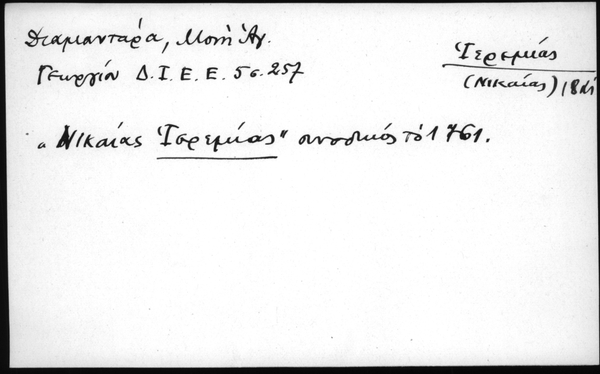 Διαμαντάρα, Μονὴ Ἁγ.
Γεωργίου Δ. Ι. Ε. Ε. 5 σ. 257
Ἱερεμίας
(Νικαίας) 18
"Νικαίας Ἱερεμίας" συνοδικός τὸ 1761.